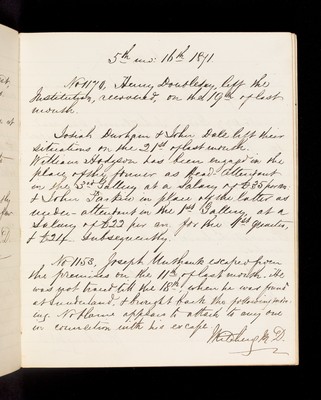 5th mo: 16th 1871
No 1170, Henry Doubleday, left the
Institution, recovered, on the 19th of last
month.
Josiah Durham & John Dale left their
situations on the 21st of last month.
William Hodgson has been engaged in the
place of the former as Head Attendant
in the 3rd Gallery at a Salary of £35 per an:
& John Parkin in place of the latter as
under-attendant in the 1st Gallery at a
Salary of £22 per an for the 1st quarter,
& £24 subsequently.
No 1153, Joseph Unthank escaped from
the premises on the 11th of last month. He
was not traced till the 15th, when he was found
at Sunderland, & brought back the following morn-
ing. No blame appears to attach to any one
in connection with his escape.
M.D.